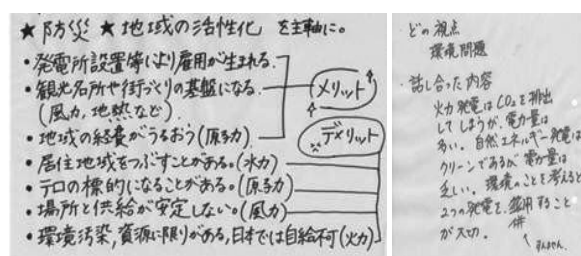 ★防災 ★地域の活性化 を主軸に。
・発電所設置等により雇用が生まれる。
・観光名所や街づくりの基盤になる。
(風力、地熱など)
・地域の経費がうるおう(原子力)
・居住地域をつぶすことがある。(水力)
・テロの標的になることがある。(原子力)
・場所と供給が安定しない。(風力)
・環境汚染,資源に限りがある,日本では自給不可(火力)
メリット
デメリット
どの視点
環境問題
・話し合った内容
火力発電はCO₂を排出
してしまうが、電力量は
多い。自然エネルギー発電は
クリーンであるが電力量は
乏しい。環境のことを考えると
2つの発電を、併用すること
が大切。